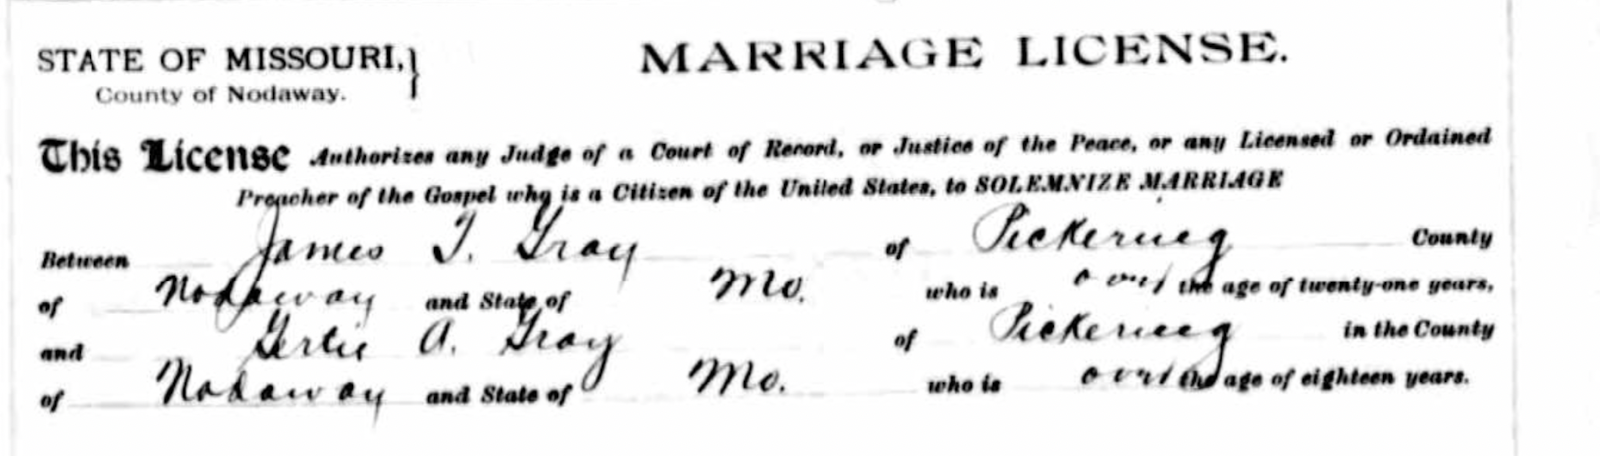 STATE OF MISSOURI,}
County of Nodaway.
MARRIAGE LICENSE.
This License Authorizes any Judge of a Court of Record, or Justice of the Peace, or any Licensed or Ordained
Preacher of the Gospel who is a Citizen of the United States, to SOLEMNIZE MARRIAGE
Between James T. Gray of Pickering County
of Nodaway and State of Mo. who is over the age of twenty-one years,
and Gertie A. Gray of Pickering in the County
of Nodaway and State of Mo. who is over the age of eighteen years.